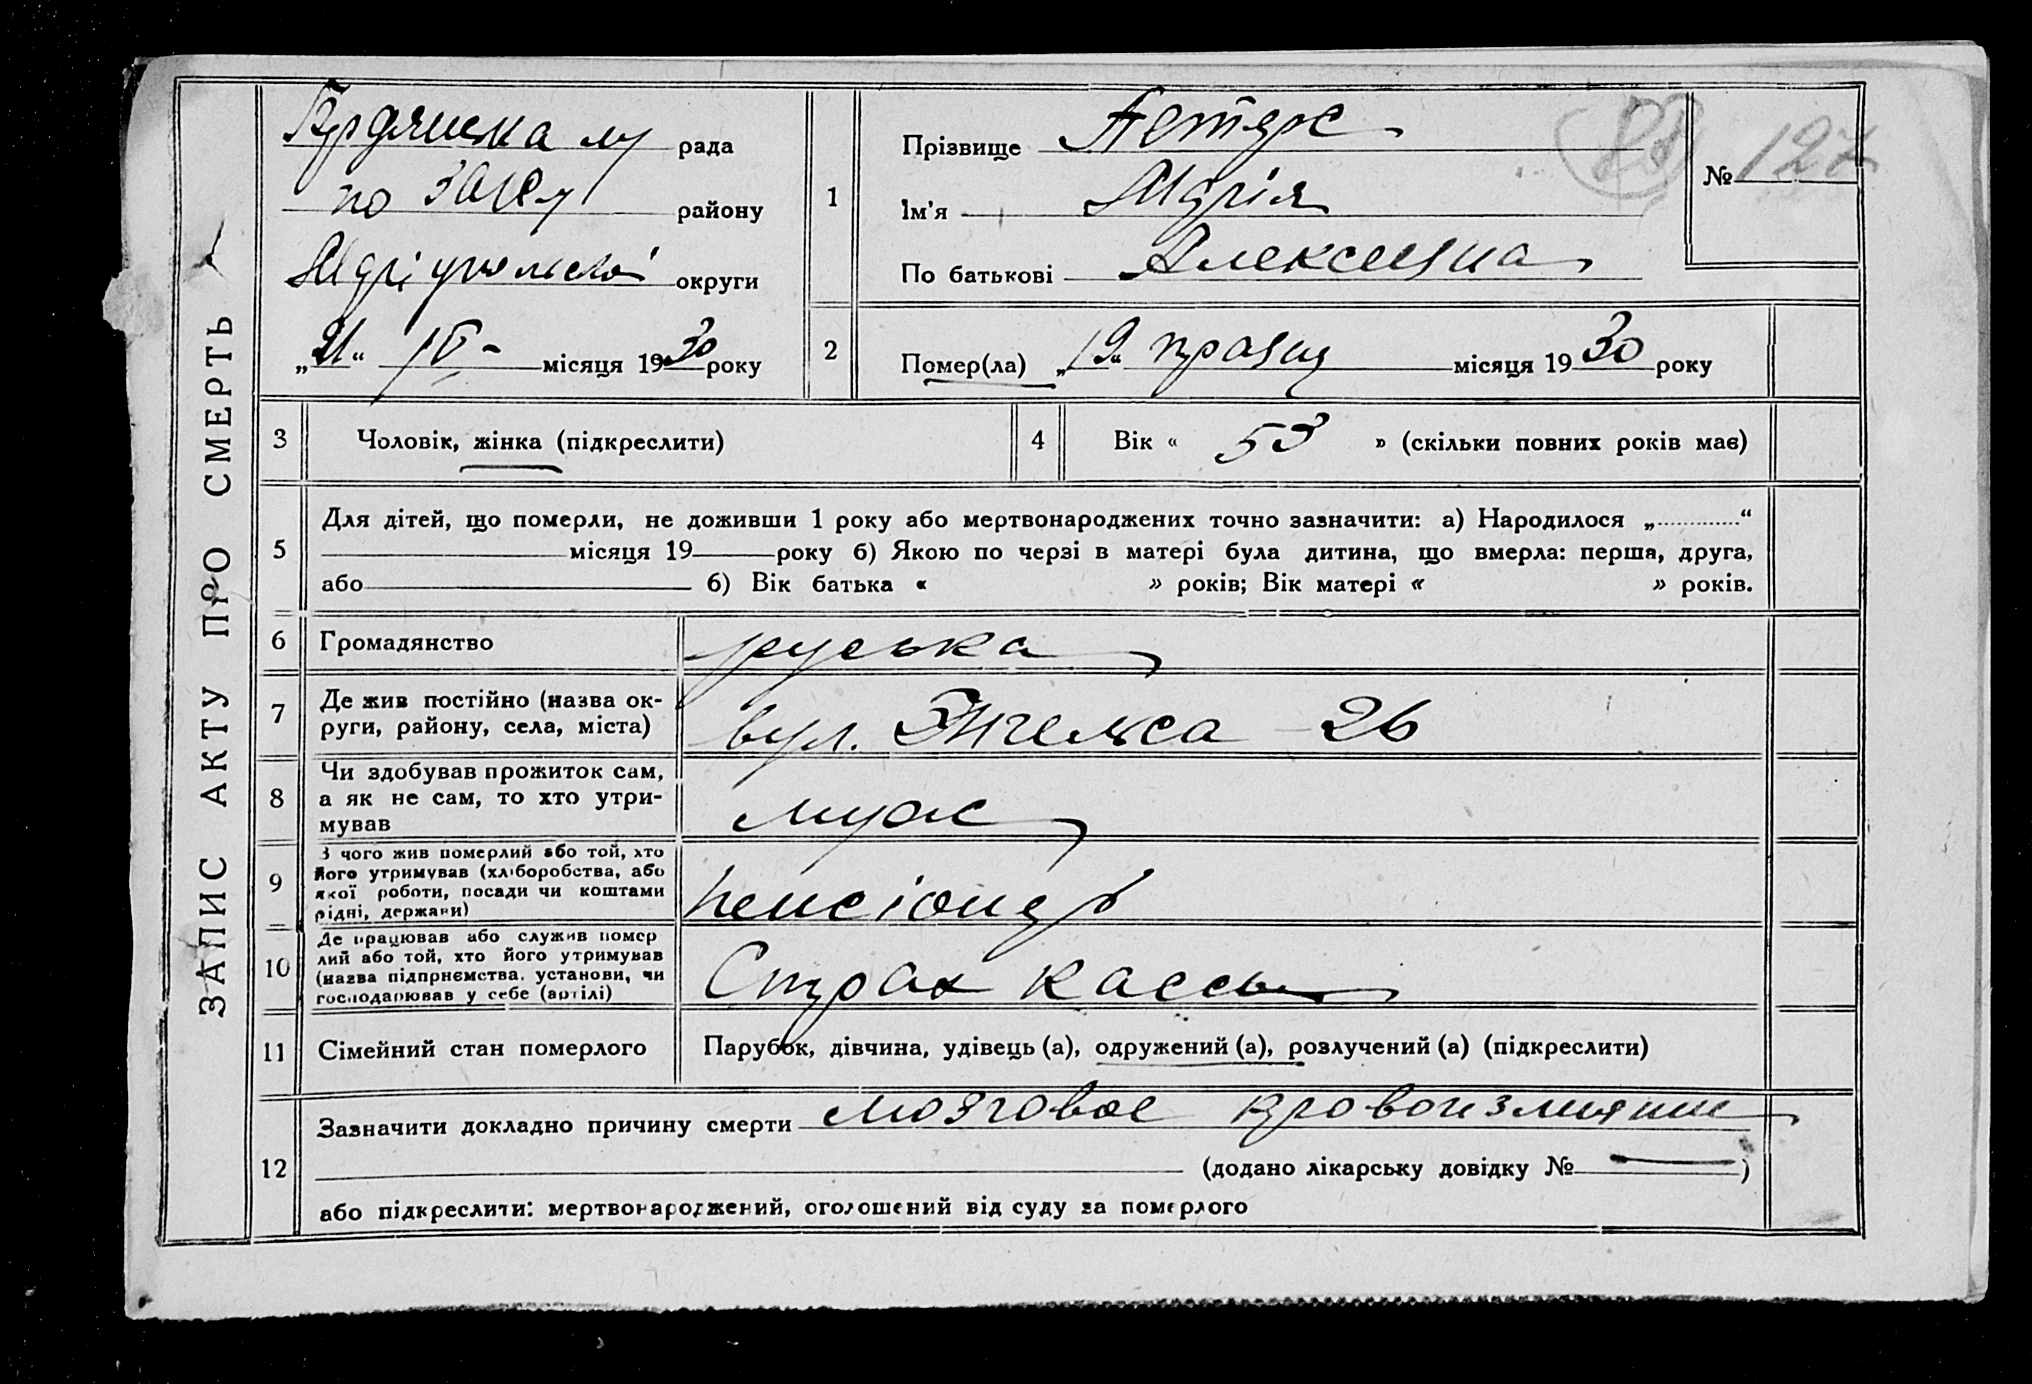 ЗАПИС АКТУ ПРО СМЕРТЬ
Бердянска м/ рада
по ЗАГСу району
Маріупольської округи
„21“ IV- місяця 1930 року
1
Прізвище
Ім'я Марія
По батькові Алексеевна
№ 127
2
Помер(ла) „19“ травня місяця 1930 року
3 Чоловік, жінка (підкреслити)
4 Вік « 53 » (скільки повних років має)
5
Для дітей, що померли, не доживши 1 року або мертвонароджених точно зазначити: а) Народилося „ “
місяця 19 року б) Якою по черзі в матері була дитина, що вмерла: перша, друга,
або б) Вік батька « » років; Вік матері « » років.
6 Громадянство руська
7 Де жив постійно (назва ок-
руги, району, села, міста)
вул. Энгельса - 26
8 Чи здобував прожиток сам,
а як не сам, то хто утри-
мував
муж
9 З чого жив померлий або той, хто
його утримував (хліборобства, або
якої роботи, посади чи коштами
рідні, держави)
пенсіонер
10 Де працював або служив помер
лий або той, хто його утримував
(назва підприємства, установи, чи
господарював у себе (артілі)
Страх кассы
11 Сімейний стан померлого Парубок, дівчина, удівець (а), одружений (а), розлучений (а) (підкреслити)
12
Зазначити докладно причину смерти мозговое кровоизлияние
(додано лікарську довідку № — )
або підкреслити: мертвонароджений, оголошений від суду за померлого